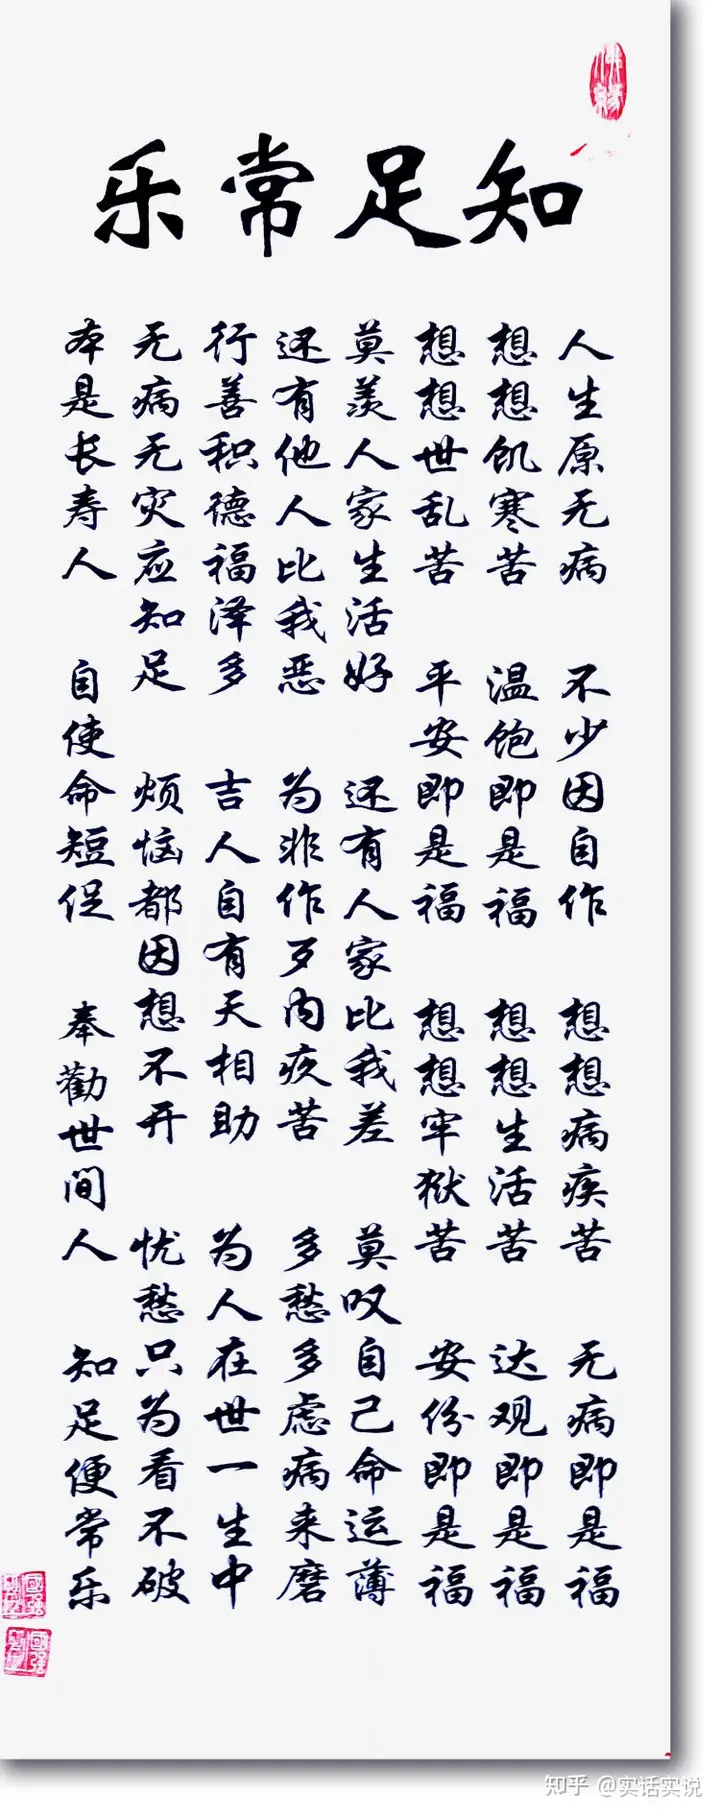 知足常乐
人生原无病 不少因自作 想想病疾苦 无病即是福
想想饥寒苦 温饱即是福 想想生活苦 达观即是福
想想世乱苦 平安即是福 想想牢狱苦 安份即是福
莫羡人家生活好 还有人家比我差 莫叹自己命运薄
还有他人比我恶 为非作歹内疚苦 多愁多虑病来磨
行善积德福泽多 吉人自有天相助 为人在世一生中
无病无灾应知足 烦恼都因想不开 忧愁只为看不破
本是长寿人 自使命短促 奉勸世间人 知足便常乐
知乎 @实话实说